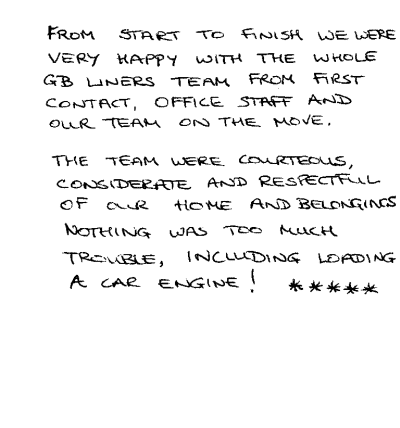 FROM START TO FINISH WE WERE
VERY HAPPY WITH THE WHOLE
GB LINERS TEAM FROM FIRST
CONTACT, OFFICE STAFF AND
OUR TEAM ON THE MOVE.
THE TEAM WERE COURTEOUS,
CONSIDERATE AND RESPECTFUL
OF OUR HOME AND BELONGINGS
NOTHING WAS TOO MUCH
TROUBLE, INCLUDING LOADING
A CAR ENGINE! *****